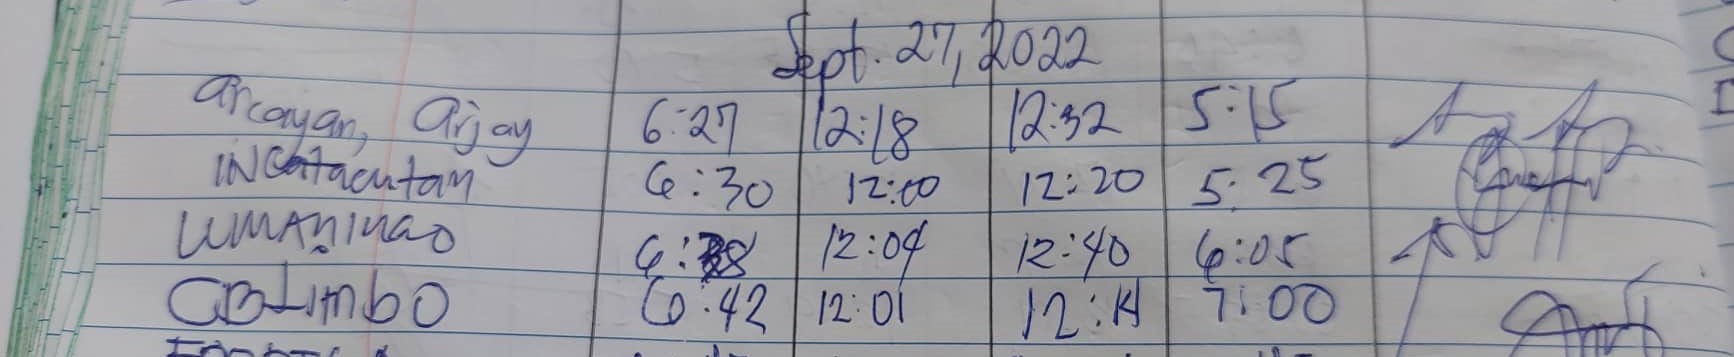 Sept. 27, 2022
Arcayan, Arjay 6:27 12:18 12:32 5:15
6:30 12:00 12:20 5:25
UMANINGO 12:04 12:40 6:05
COLIMBO 6:42 12:01 12:14 7:00